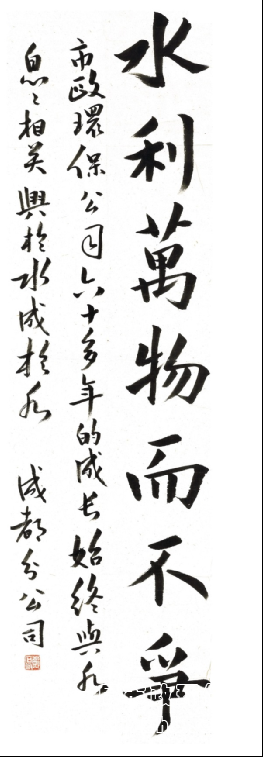 水利萬物而不爭
市政環保公司六十多年的成长始終與水
息々相关興於水成於水 成都分公司